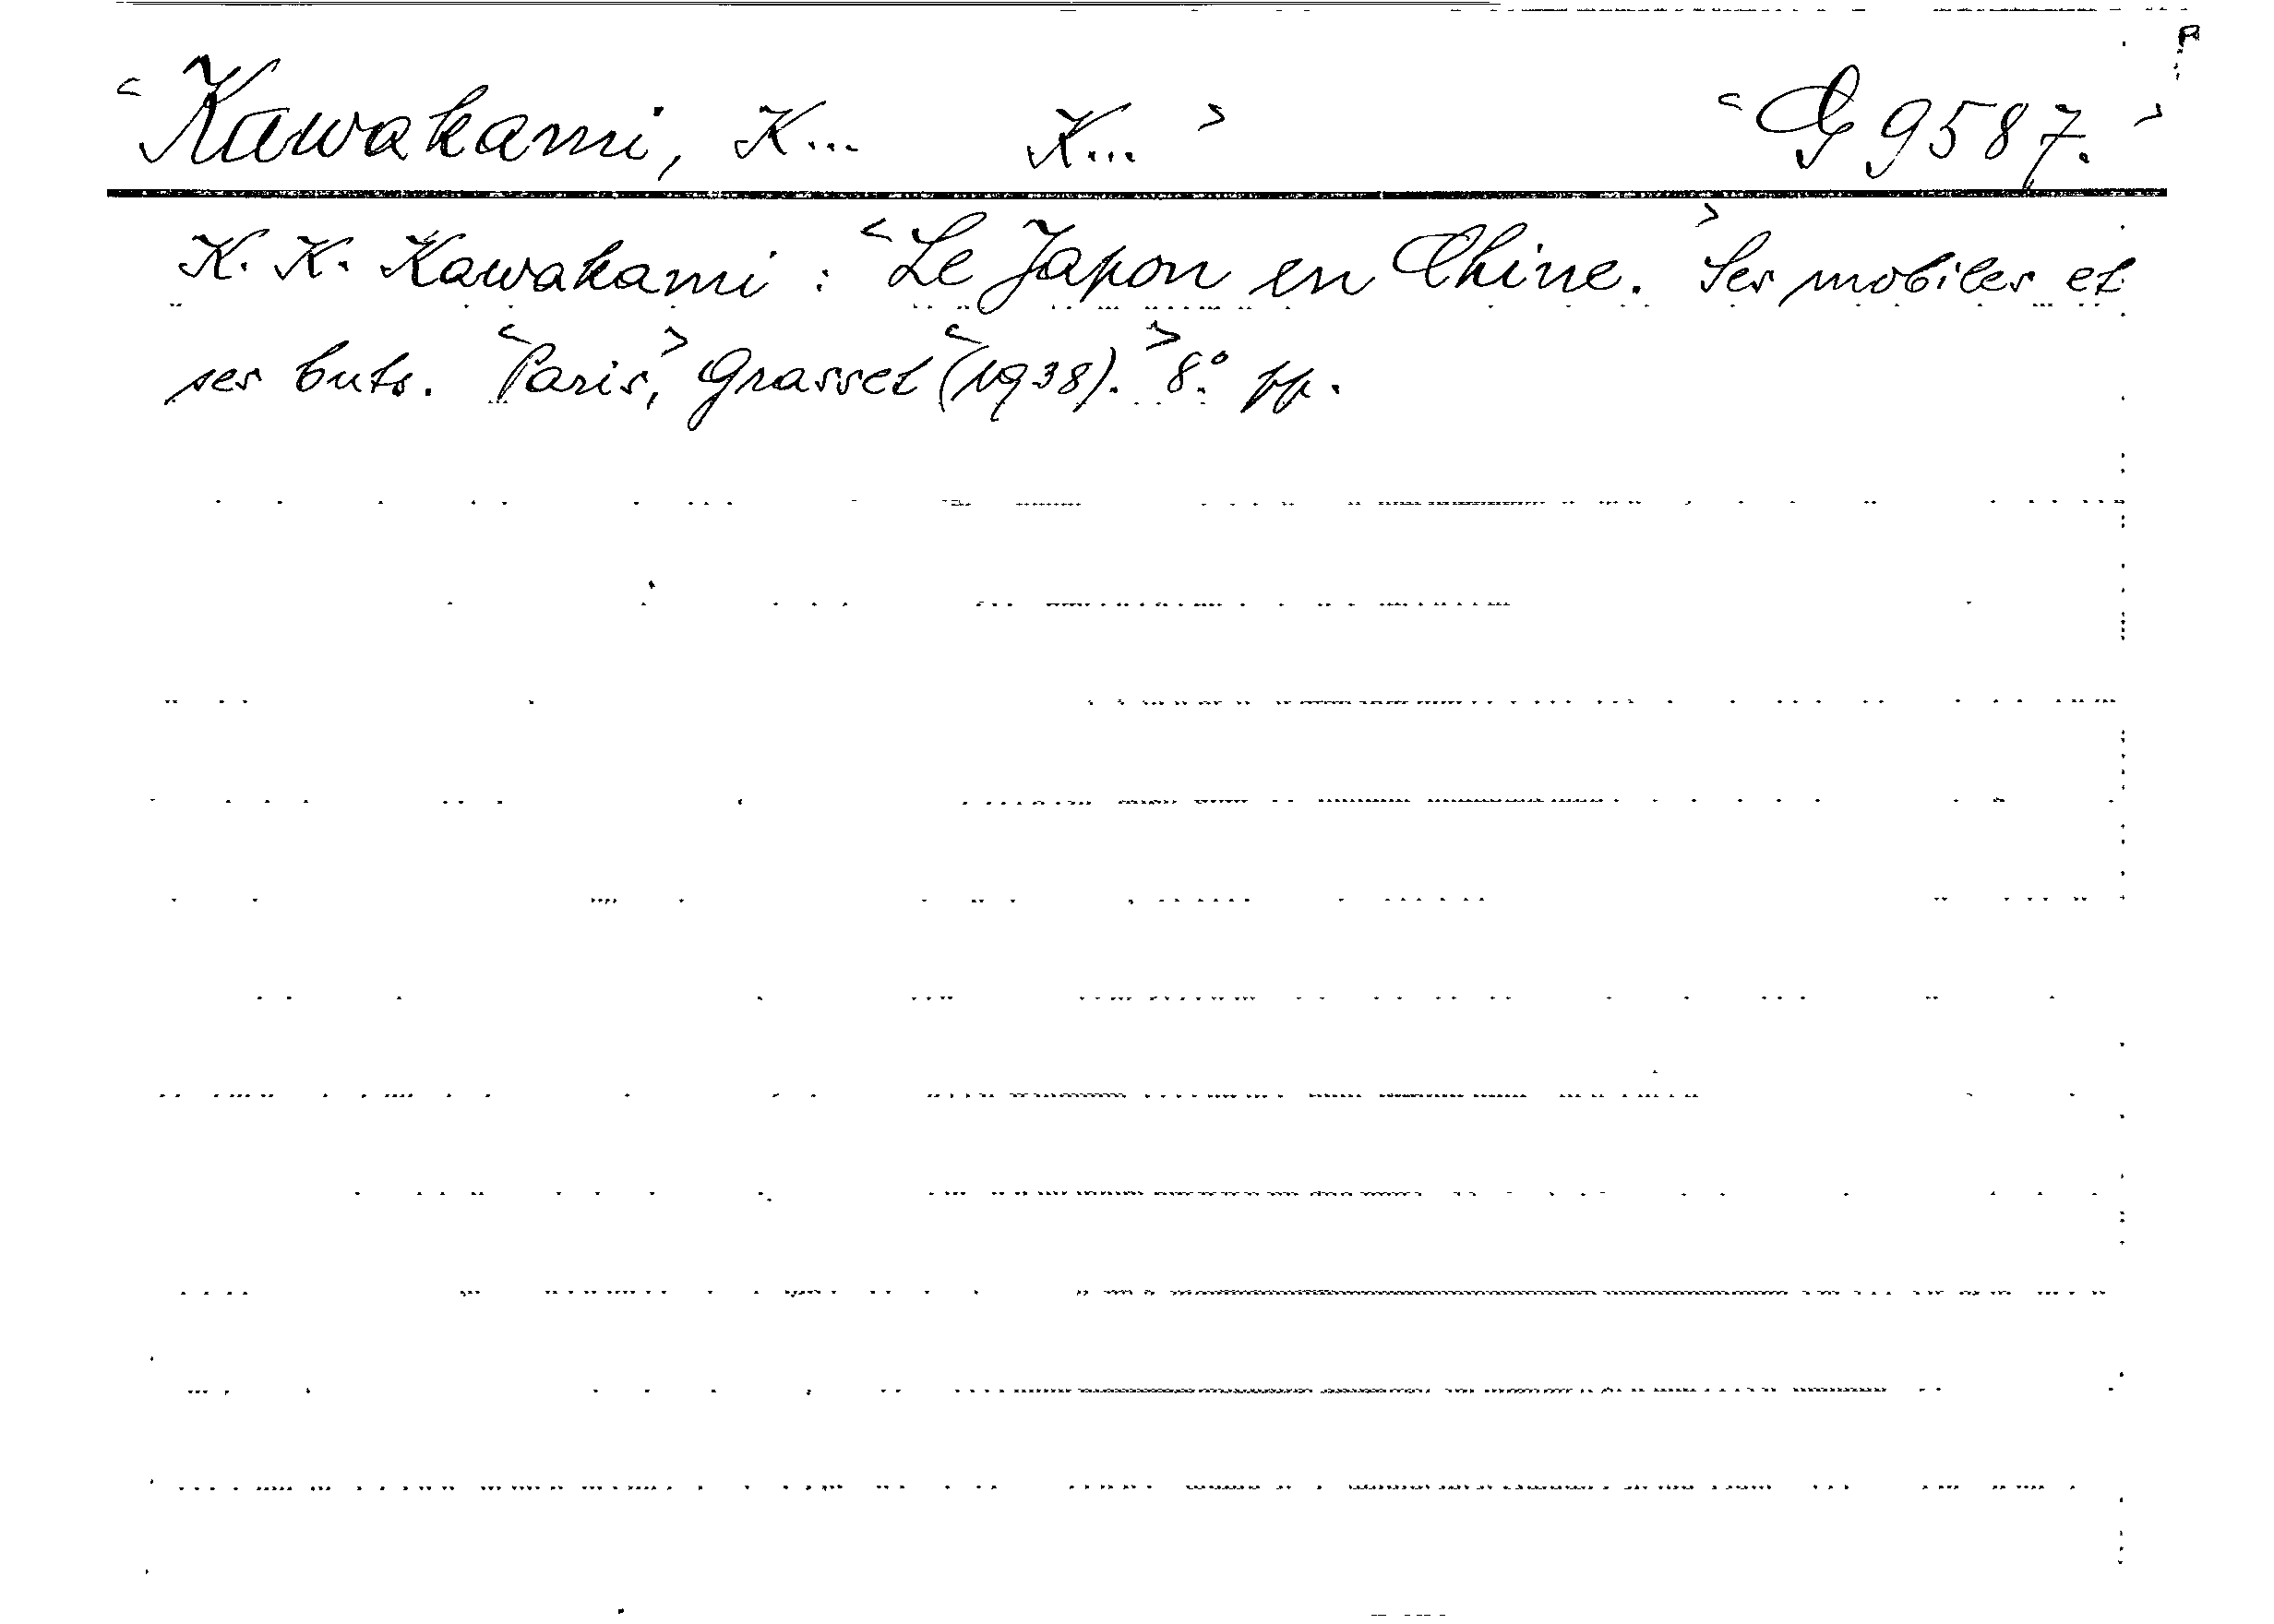 <Kawakami, K... K...> <G 9587.>
K. K. Kawakami : <Le Japon en Chine.> Ses mobiles et
ses buts. <Paris,> Grasset <(1938).> 8.° pp.